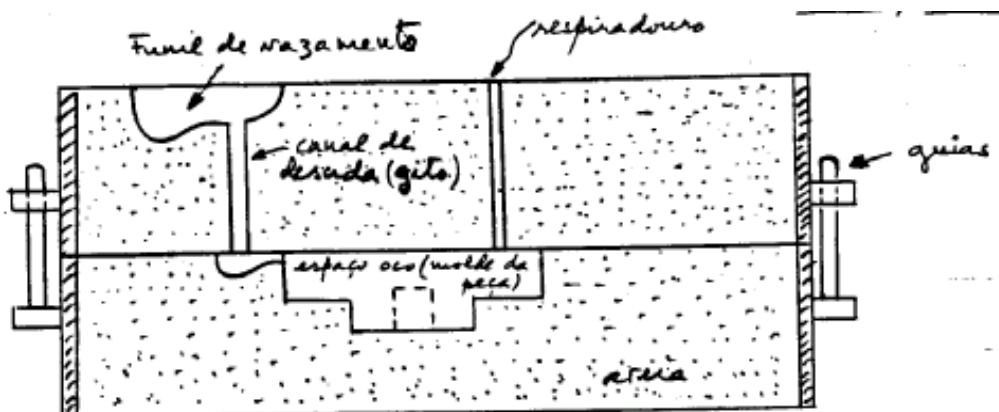 Funil de vazamento
respiradouro
canal de
descida (gito)
guias
espaço oco (molde da
peça)
areia